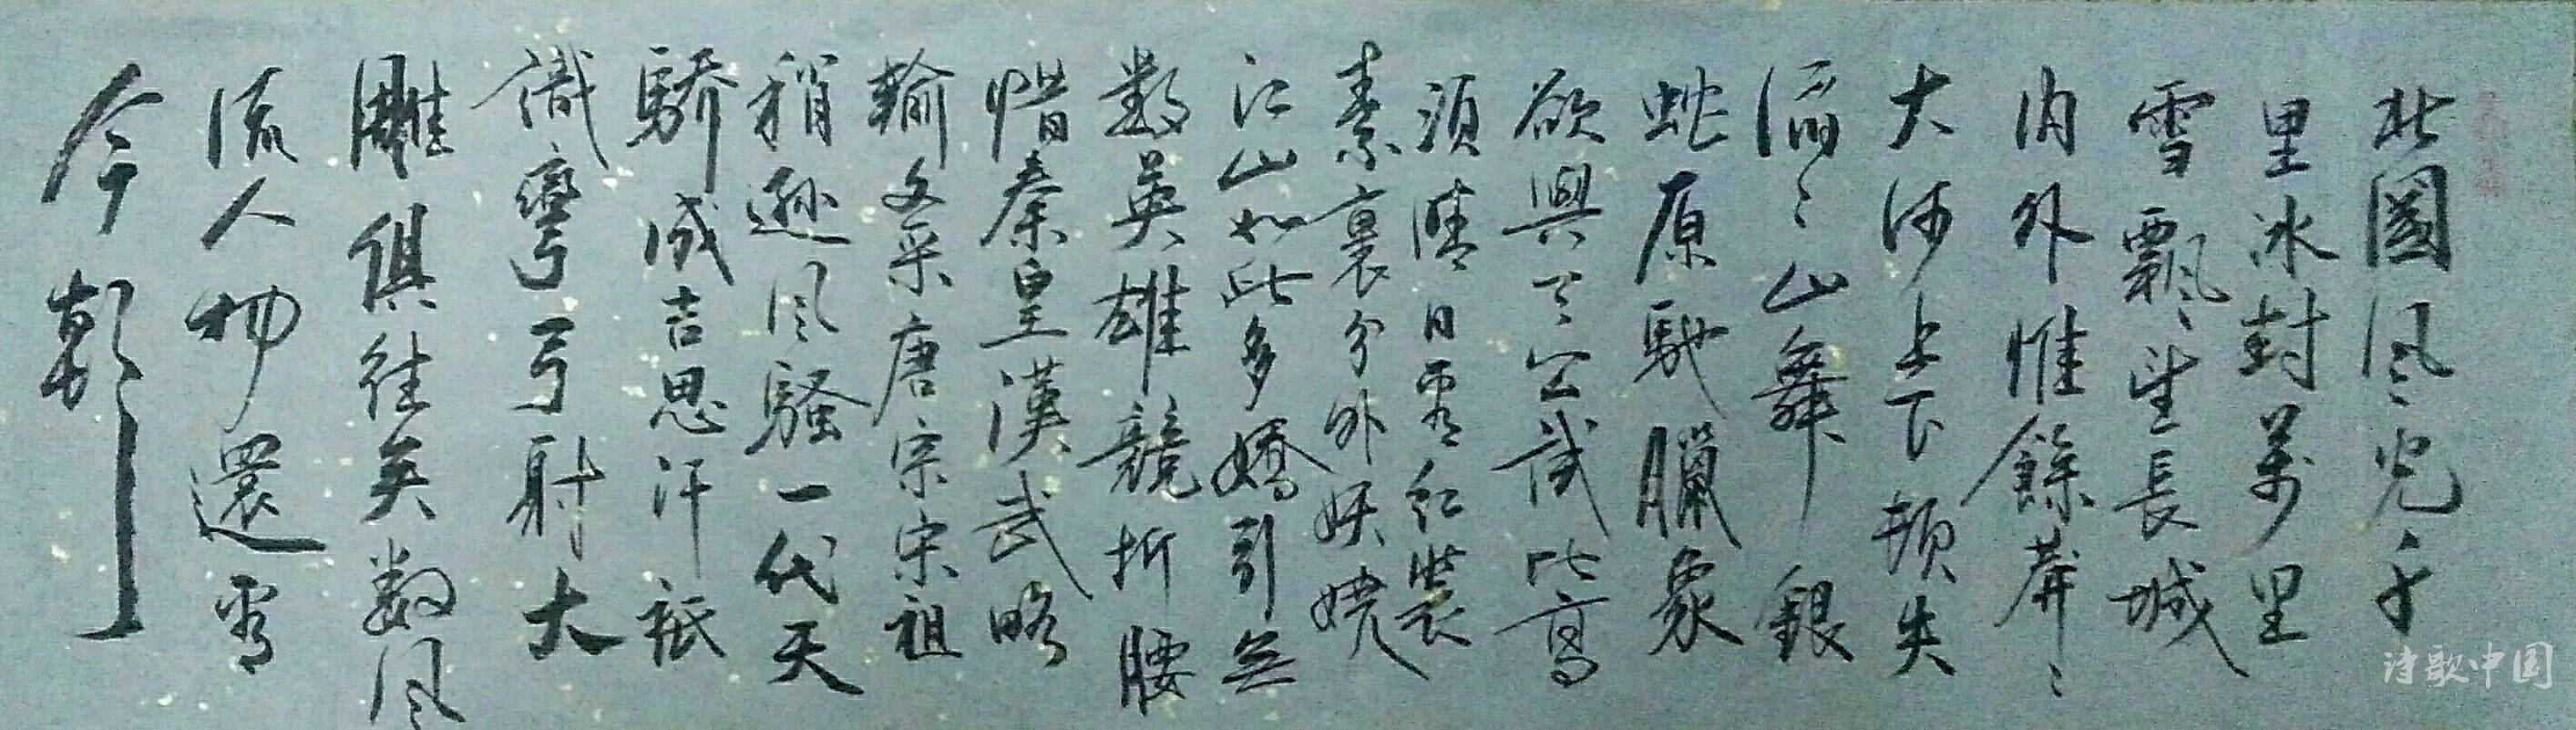 北國风光千
里冰封萬里
雪飄望長城
内外惟餘莽々
大河上下頓失
滔々山舞銀
蛇原馳臘象
欲與天公試比高
須晴日看紅裝
素裹分外妖嬈
江山如此多嬌引無
數英雄競折腰
惜秦皇漢武略
輸文采唐宗宋祖
稍遜风騷一代天
驕成吉思汗祇
識彎弓射大
雕俱往矣數风
流人物還看
今朝
诗歌中国